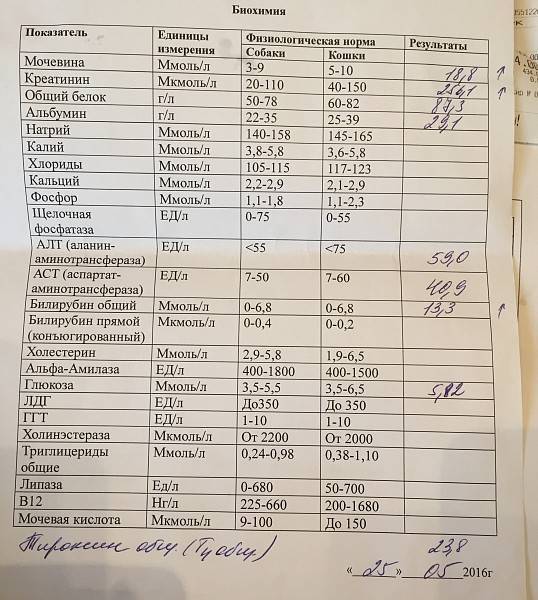 Биохимия
Показатель Единицы измерения Физиологическая норма Результаты
Собаки Кошки
Мочевина Ммоль/л 3-9 5-10 18,8 ↑
Креатинин Мкмоль/л 20-110 40-150 254,1 ↑
Общий белок г/л 50-78 60-82 87,3
Альбумин г/л 22-35 25-39 29,1
Натрий Ммоль/л 140-158 145-165
Калий Ммоль/л 3,8-5,8 3,6-5,8
Хлориды Ммоль/л 105-115 117-123
Кальций Ммоль/л 2,2-2,9 2,1-2,9
Фосфор Ммоль/л 1,1-1,8 1,1-2,3
Щелочная фосфатаза ЕД/л 0-75 0-55
АЛТ (аланин-
аминотрансфераза) ЕД/л <55 <75 59,0
АСТ (аспартат-
аминотрансфераза) ЕД/л 7-50 7-60 40,9
Билирубин общий Ммоль/л 0-6,8 0-6,8 13,3 ↑
Билирубин прямой
(конъюгированный) Мкмоль/л 0-0,4 0-0,2
Холестерин Ммоль/л 2,9-5,8 1,9-6,5
Альфа-Амилаза ЕД/л 400-1800 400-1500
Глюкоза Ммоль/л 3,5-5,5 3,5-6,5 5,82
ЛДГ ЕД/л До350 До 350
ГГТ ЕД/л 1-10 1-10
Холинэстераза Мкмоль/л От 2200 От 2000
Триглицериды
общие Ммоль/л 0,24-0,98 0,38-1,10
Липаза Ед/л 0-680 50-700
В12 Нг/л 225-660 200-1680
Мочевая кислота Мкмоль/л 9-100 До 150
Тироксин общ. (Т4 общ.) 23,8
«25» 05 2016г